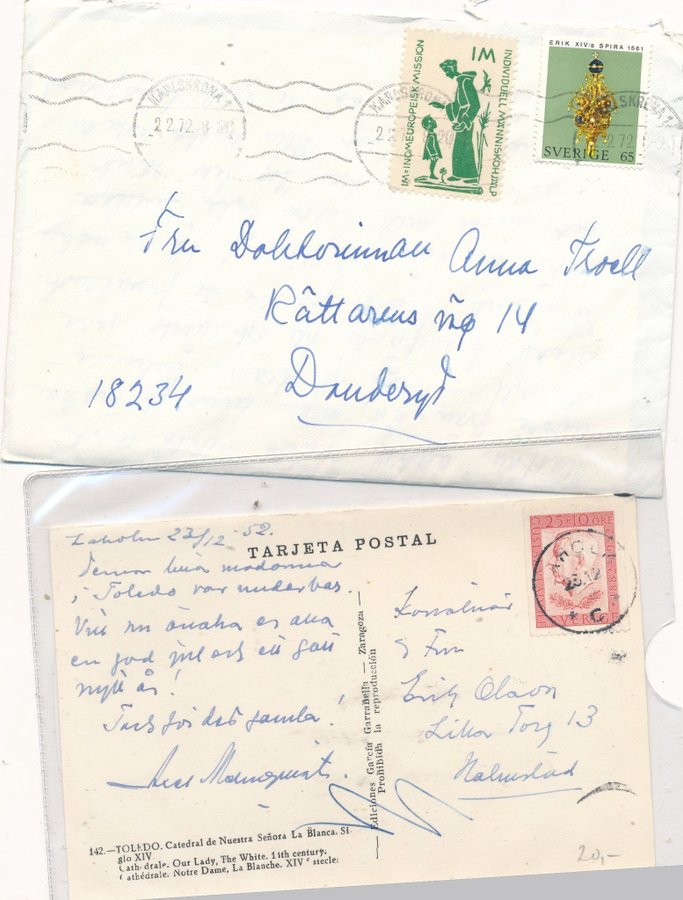 KARLSKRONA 1
2.2.72
IM
IM=INOMEUROPEISK MISSION
INDIVIDUELL MÄNNISKOHJÄLP
ERIK XIV:s SPIRA 1561
SVERIGE 65
Fru Doktorinnan Anna Troell
Rättarens väg 14
18234 Danderyd
Laholm 23/12 52.
TARJETA POSTAL
Denna lilla madonna
i Toledo var underbar.
Vill nu önska er alla
en god jul och ett gott
nytt år!
Tack för det gamla!
25+10 ÖRE
1882
SVERIGE
LAHOLM
23.12
* C
Konsulinär
& Fru
Erik Olson
Lilla Torg 13
Halmstad
Ediciones García Garrabella — Zaragoza —
Prohibida la reproducción
142.—TOLEDO. Catedral de Nuestra Señora La Blanca. Si-
glo XIV
Cathedrale. Our Lady, The White. 14th century.
Cathédrale. Notre Dame, La Blanche. XIV e siecle.
20,-